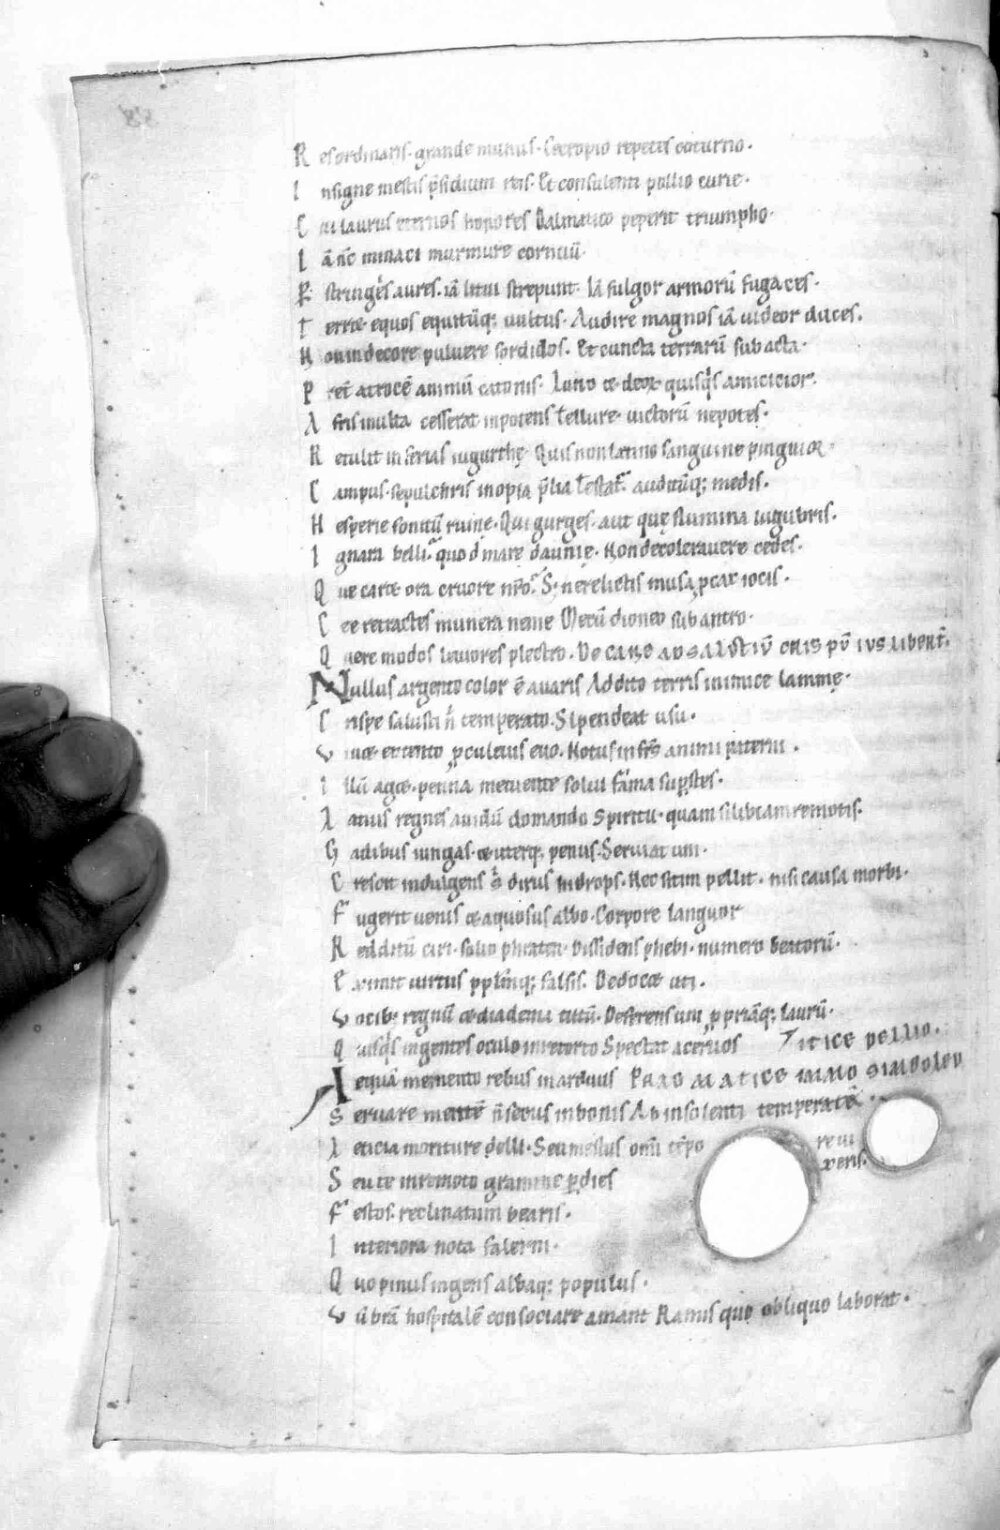 R es ordinaris. grande munus. Cecropio repetes coturno.
I nsigne mestis p̄sidium reis. Et consulenti pollio curie.
C ui laurus eternos honores Dalmatico peperit triumpho.
I ā nc̄ minaci murmure cornuū.
P stringis aures. iā litui strepunt. Iā fulgor armorū fugaces.
T erret equos equitūq; vultus. Audire magnos iā uideor duces.
N on indecoro puluere sordidos. Et cuncta terrarū subacta.
P ret̄ atrocē animū catonis. Iuno et deoꝝ quisq̄s amicicior.
A fris inulta cesserat inpotens tellure. uictorū nepotes.
R etulit inferias iugurthę. Quis non latino sanguine pinguior
C ampus. sepulchris inopia p̄lia testat᷑. auditūq; medis.
H esperie sonitū ruinę. Qui gurges. aut quę flumina lugubris.
I gnara belli. quod mare daunię. Non decolorauere cedes.
Q ue caret ora cruore nr̄o. S; ne relictis musa ꝓcax iocis.
C ee retractes munera nenie Mecū dioneo sub antro.
Q uere modos leuiores plectro. DE CARO AD SALUSTIŪ
N ullus argento color ē auaris Addito terris inimice lamnę.
C rispe salusti n̄ temperato. Splendeat usu.
V iuet extento ꝓculeius euo. Notus in frs̄ animi paterni.
I llū aget. penna metuente solui fama supstes.
L atius regnes auidū domando Spiritu. quam si libiam remotis.
G adibus iungas. et uterq; penus. Seruiat uni.
C rescit indulgens s̄ dirus hidrops. Nec sitim pellit. nisi causa morbi.
F ugerit uenis et aquosus albo. Corpore languor
R edditū ciri. solio phraten. Dissidens plebi. numero beatorū.
E ximit uirtus pplūmq; falsis. Dedocet uti.
V ocib; regnū et diadema tutū. Deferens uni ꝓpriāq; laurū.
Q uisq̄s ingentes oculo inretorto Spectat aceruos
A equā memento rebus in arduis
S eruare mentē n̄ secus in bonis Ab insolenti temperatā.
L eticia moriture delli. Seu mestus omī tēpo re ui
S eu te in remoto gramine p dies xeris.
F estos. reclinatum bearis.
I nteriora nota falerni.
Q uo pinus ingens albaq; populus.
V ūbrā hospitalē consociare amant Ramis quo obliquo laborat.